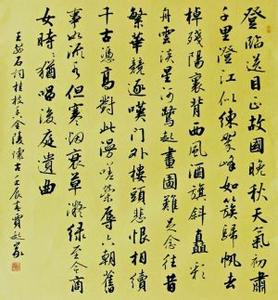 登臨送目正故國晚秋天氣初肅
千里澄江似練翠峰如簇歸帆去
棹殘陽裏背西風酒旗斜矗彩
舟雲淡星河鷺起畫圖難足念往昔
繁華競逐嘆門外樓頭悲恨相續
千古憑高對此漫嗟榮辱六朝舊
事如流水但寒煙衰草凝綠至今商
女時猶唱後庭遺曲
王安石詞桂枝香金陵懷古壬辰